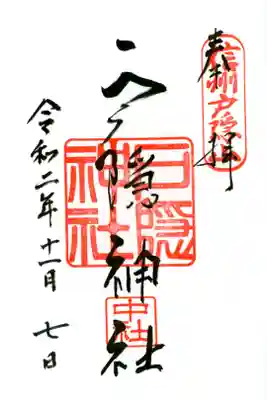 奉拝
信州戸隠
戸隠神社
戸隠神社
中社
令和二年十一月七日